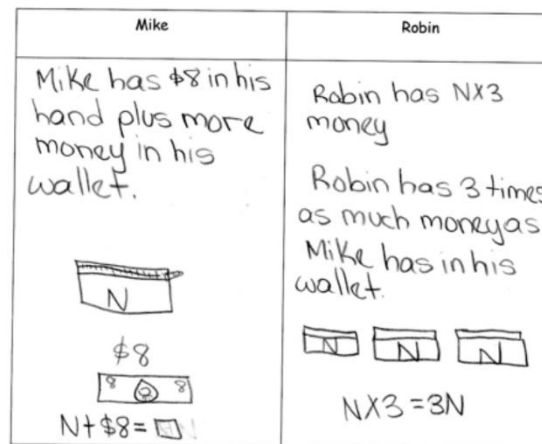 Mike
Mike has $8 in his
hand plus more
money in his
wallet.
N
$8
8 8
N+$8=
Robin
Robin has NX3
money
Robin has 3 times
as much money as
Mike has in his
wallet.
N N N
NX3=3N